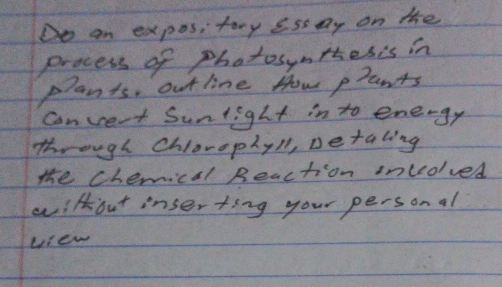 Do an expository Essay on the
process of photosynthesis in
plants. outline How plants
convert Sunlight in to energy
through chlorophyll, Detailing
the chemical Reaction involved
without inserting your personal
view